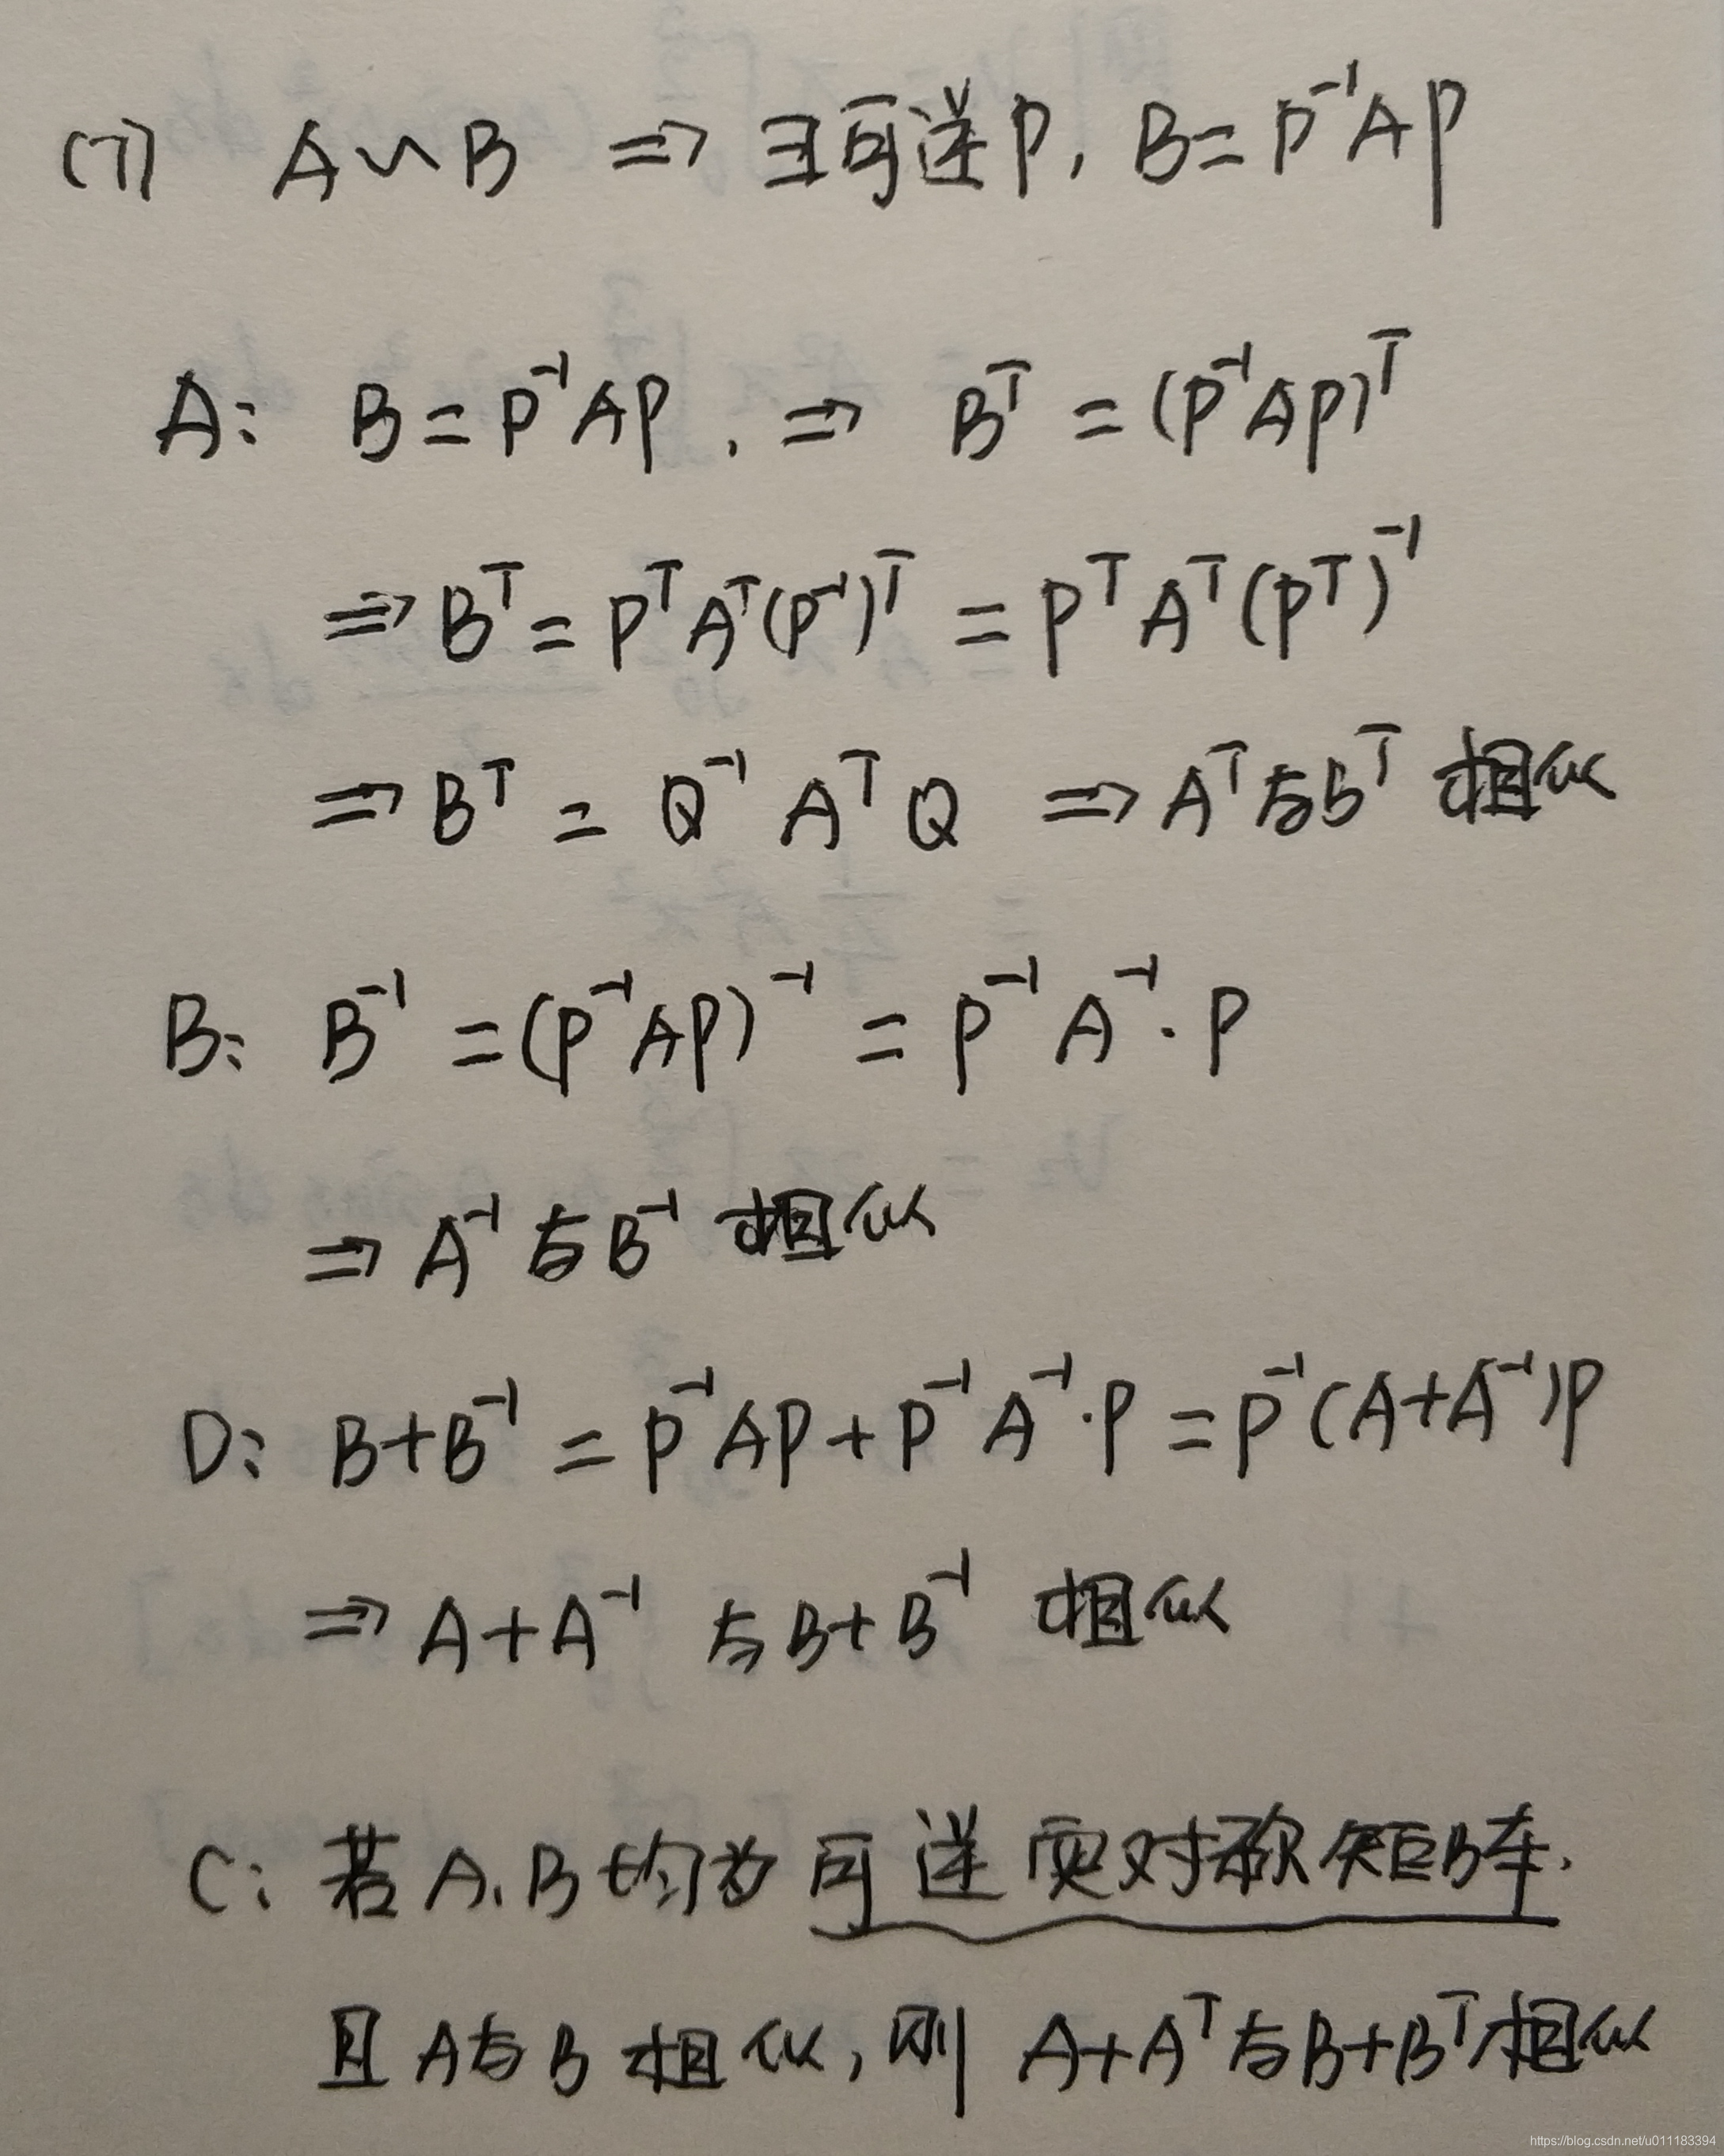 (7) A∽B ⇒ ∃可逆P, B=P⁻¹AP
A: B=P⁻¹AP, ⇒ Bᵀ=(P⁻¹AP)ᵀ
⇒Bᵀ=PᵀAᵀ(P⁻¹)ᵀ=PᵀAᵀ(Pᵀ)⁻¹
⇒Bᵀ=Q⁻¹AᵀQ ⇒Aᵀ与Bᵀ相似
B: B⁻¹=(P⁻¹AP)⁻¹=P⁻¹A⁻¹·P
⇒A⁻¹与B⁻¹相似
D: B+B⁻¹=P⁻¹AP+P⁻¹A⁻¹·P=P⁻¹(A+A⁻¹)P
⇒A+A⁻¹与B+B⁻¹相似
C: 若A,B均为可逆实对称矩阵.
且A与B相似,则A+Aᵀ与B+Bᵀ相似
https://blog.csdn.net/u011183394